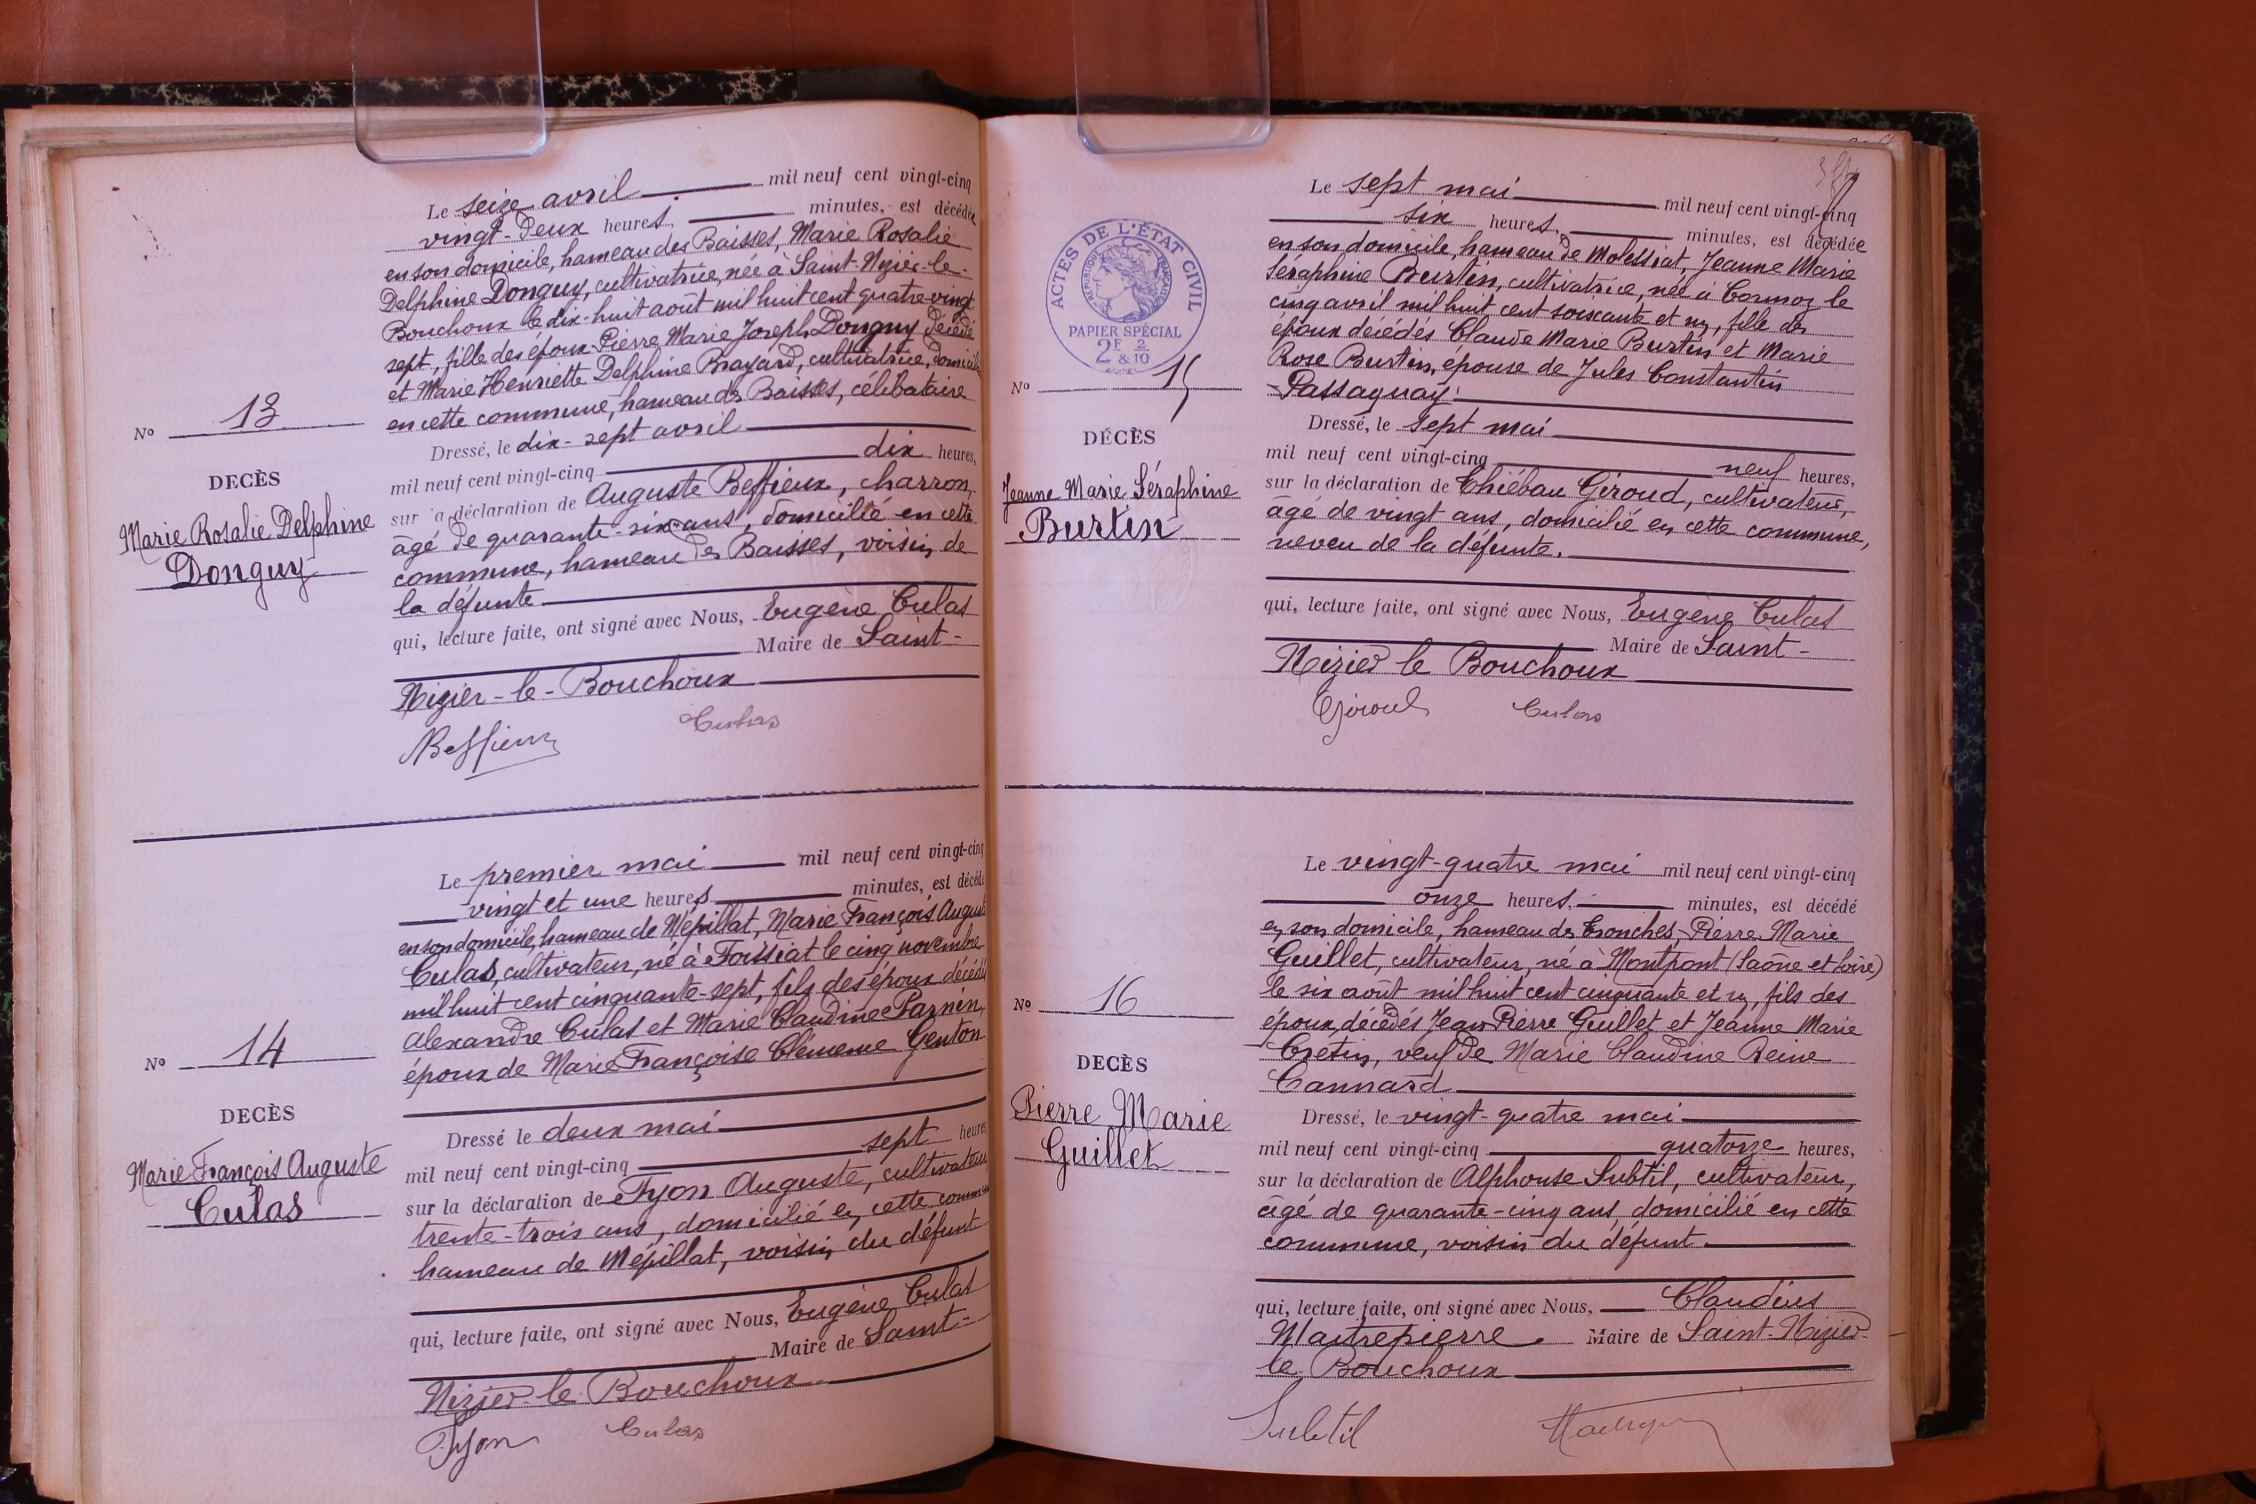 N° 13
DECÈS
Marie Rosalie Delphine
Donguy
Le seize avril mil neuf cent vingt-cinq
vingt-deux heures, minutes, est décédée
en son domicile, hameau des Baisses, Marie Rosalie
Delphine Donguy, cultivatrice, née à Saint-Nizier-le-
Bouchoux le dix-huit août mil huit cent quatre-vingt
sept, fille des époux Pierre Marie Joseph Donguy décédé
et Marie Henriette Delphine Brayard, cultivatrice, domicili
en cette commune, hameau des Baisses, célibataire
Dressé, le dix-sept avril
mil neuf cent vingt-cinq dix heures,
sur la déclaration de Auguste Beffieux, charron,
âgé de quarante-six ans, domicilié en cette
commune, hameau des Baisses, voisin de
la défunte
qui, lecture faite, ont signé avec Nous, Eugène Culas
Maire de Saint-
Nizier-le-Bouchoux
Beffieux Culas
N° 14
DECÈS
Marie François Auguste
Culas
Le premier mai mil neuf cent vingt-cinq
vingt et une heures minutes, est décédé
en son domicile, hameau de Mépillat, Marie François Auguste
Culas, cultivateur, né à Foissiat le cinq novembre
mil huit cent cinquante-sept, fils des époux décédés
Alexandre Culas et Marie Claudine Parnin,
époux de Marie Françoise Clémence Genton
Dressé le deux mai
mil neuf cent vingt-cinq sept heures
sur la déclaration de Tyon Auguste, cultivateur
trente-trois ans, domicilié en cette commune
hameau de Mépillat, voisin du défunt
qui, lecture faite, ont signé avec Nous, Eugène Culas
Maire de Saint-
Nizier-le-Bouchoux
Tyon Culas
ACTES DE L'ÉTAT CIVIL
RÉPUBLIQUE FRANÇAISE
PAPIER SPÉCIAL
2F 2
& 10
N° 15
DÉCÈS
Jeanne Marie Séraphine
Burtin
Le sept mai mil neuf cent vingt-cinq
six heures, minutes, est décédée
en son domicile, hameau de Molissiat, Jeanne Marie
Séraphine Burtin, cultivatrice, née à Cormoz le
cinq avril mil huit cent soixante et un, fille des
époux décédés Claude Marie Burtin et Marie
Rose Burtin, épouse de Jules Constantin
Passaquay.
Dressé, le sept mai
mil neuf cent vingt-cinq neuf heures,
sur la déclaration de Thiébau Giroud, cultivateur,
âgé de vingt ans, domicilié en cette commune,
neveu de la défunte.
qui, lecture faite, ont signé avec Nous, Eugène Culas
Maire de Saint-
Nizier le Bouchoux
Giroud Culas
N° 16
DECÈS
Pierre Marie
Guillet
Le vingt-quatre mai mil neuf cent vingt-cinq
onze heures, minutes, est décédé
en son domicile, hameau des Tronches, Pierre Marie
Guillet, cultivateur, né à Montpont (Saône et Loire)
le six août mil huit cent cinquante et un, fils des
époux décédés Jean Pierre Guillet et Jeanne Marie
Crétin, veuf de Marie Claudine Reine
Cannard
Dressé, le vingt-quatre mai
mil neuf cent vingt-cinq quatorze heures,
sur la déclaration de Alphonse Subtil, cultivateur,
âgé de quarante-cinq ans, domicilié en cette
commune, voisin du défunt.
qui, lecture faite, ont signé avec Nous, Claudius
Maitrepierre Maire de Saint-Nizier-
le Bouchoux
Subtil